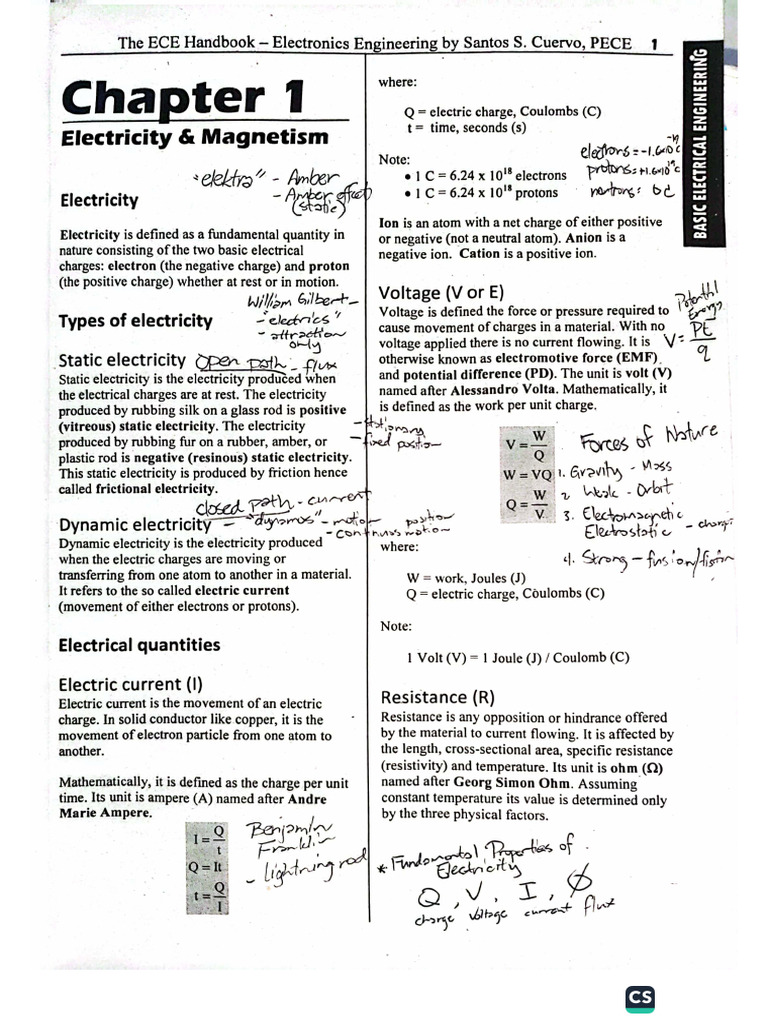 The ECE Handbook – Electronics Engineering by Santos S. Cuervo, PECE 1
BASIC ELECTRICAL ENGINEERING
Chapter 1
Electricity & Magnetism
"elektra" - Amber
- Amber effect
(static)
Electricity
Electricity is defined as a fundamental quantity in
nature consisting of the two basic electrical
charges: electron (the negative charge) and proton
(the positive charge) whether at rest or in motion.
William Gilbert -
- "electrics"
- attraction
only
Types of electricity
Static electricity
Open path - flux
Static electricity is the electricity produced when
the electrical charges are at rest. The electricity
produced by rubbing silk on a glass rod is positive
(vitreous) static electricity. The electricity
produced by rubbing fur on a rubber, amber, or
plastic rod is negative (resinous) static electricity.
This static electricity is produced by friction hence
called frictional electricity.
- stationary
- fixed position
closed path - current
Dynamic electricity
- "dynamos" - motion position
- continuos motion
Dynamic electricity is the electricity produced
when the electric charges are moving or
transferring from one atom to another in a material.
It refers to the so called electric current
(movement of either electrons or protons).
Electrical quantities
Electric current (I)
Electric current is the movement of an electric
charge. In solid conductor like copper, it is the
movement of electron particle from one atom to
another.
Mathematically, it is defined as the charge per unit
time. Its unit is ampere (A) named after Andre
Marie Ampere.
I = Q/t
Q = It
t = Q/I
Benjamin
Franklin
- lightning rod
where:
Q = electric charge, Coulombs (C)
t = time, seconds (s)
Note:
• 1 C = 6.24 x 10^18 electrons
• 1 C = 6.24 x 10^18 protons
electrons = -1.6x10^-19 C
protons: +1.6x10^-19 C
neutrons: 0 C
Ion is an atom with a net charge of either positive
or negative (not a neutral atom). Anion is a
negative ion. Cation is a positive ion.
Voltage (V or E)
Voltage is defined the force or pressure required to
cause movement of charges in a material. With no
voltage applied there is no current flowing. It is
otherwise known as electromotive force (EMF)
and potential difference (PD). The unit is volt (V)
named after Alessandro Volta. Mathematically, it
is defined as the work per unit charge.
Potential
Energy
V = PE/q
V = W/Q
W = VQ
Q = W/V
Forces of Nature
1. Gravity - Mass
2 Weak - Orbit
3. Electromagnetic
Electrostatic
4. Strong - fusion/fision
where:
W = work, Joules (J)
Q = electric charge, Coulombs (C)
Note:
1 Volt (V) = 1 Joule (J) / Coulomb (C)
Resistance (R)
Resistance is any opposition or hindrance offered
by the material to current flowing. It is affected by
the length, cross-sectional area, specific resistance
(resistivity) and temperature. Its unit is ohm (Ω)
named after Georg Simon Ohm. Assuming
constant temperature its value is determined only
by the three physical factors.
* Fundamental Properties of
Electricity
Q, V, I, Ø
charge voltage current flux
CS